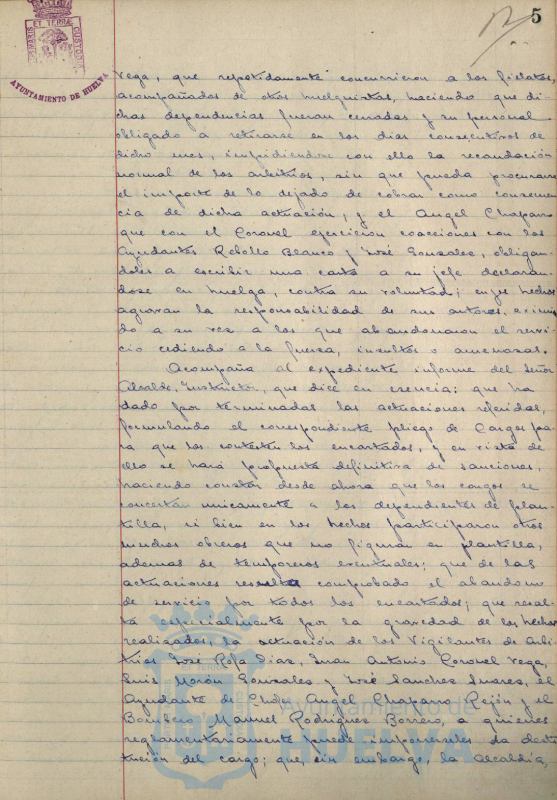 5
PORTUS MARIS ET TERRAE CUSTODIA
AYUNTAMIENTO DE HUELVA
Vega, que repetidamente concurrieron a los fielatos,
acompañados de otros huelguistas, haciendo que di-
chas dependencias fueran cerradas y su personal
obligado a retirarse en los dias consecutivos de
dicho mes, impidiendose con ello la recaudación
normal de los arbitrios, sin que pueda procurarse
el importe de lo dejado de cobrar como consecuen-
cia de dicha actuación, y el Angel Chaparro
que con el Coronel ejercieron coacciones con los
Ayudantes Rebollo Blanco y José Gonzalez, obligan-
doles a escribir una carta a su jefe declaran-
dose en huelga, contra su voluntad; cuyos hechos
agravan la responsabilidad de sus autores, eximien-
do a su vez a los que abandonaron el servi-
cio cediendo a la fuerza, insultos o amenazas.
Acompaña al expediente informe del Señor
Alcalde, Instructor, que dice en esencia: que ha
dado por terminadas las actuaciones referidas,
formulando el correspondiente pliego de Cargos pa-
ra que los contesten los encartados, y en vista de
ello se hará propuesta definitiva de sanciones,
haciendo constar desde ahora que los cargos se
concretan unicamente a los dependientes de plan-
tilla, si bien en los hechos participaron otros
muchos obreros que no figuran en plantilla,
ademas de temporeros eventuales; que de las
actuaciones resulta comprobado el abandono
de servicio por todos los encartados; que resal-
ta especialmente por la gravedad de los hechos
realizados, la actuación de los Vigilantes de Arbi-
trios José Rofa Diaz, Juan Antonio Coronel Vega,
Luis Morón Gonzales y José Sanchez Suarez, el
Ayudante de Angel Chaparro Rejón y el
Bombero Manuel Rodriguez Borrero, a quienes
reglamentariamente puede imponerseles la desti-
tución del cargo; que, sin embargo, la Alcaldía,
Ayuntamiento de
HUELVA